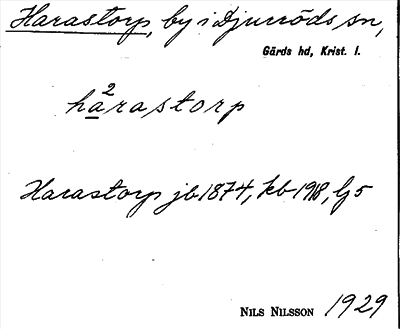 Harastorp, by i Djurröds sn,
Gärds hd, Krist. l.
ha²rastorp
Harastorp jb 1874, kb 1918, Lj 5
NILS NILSSON 1929